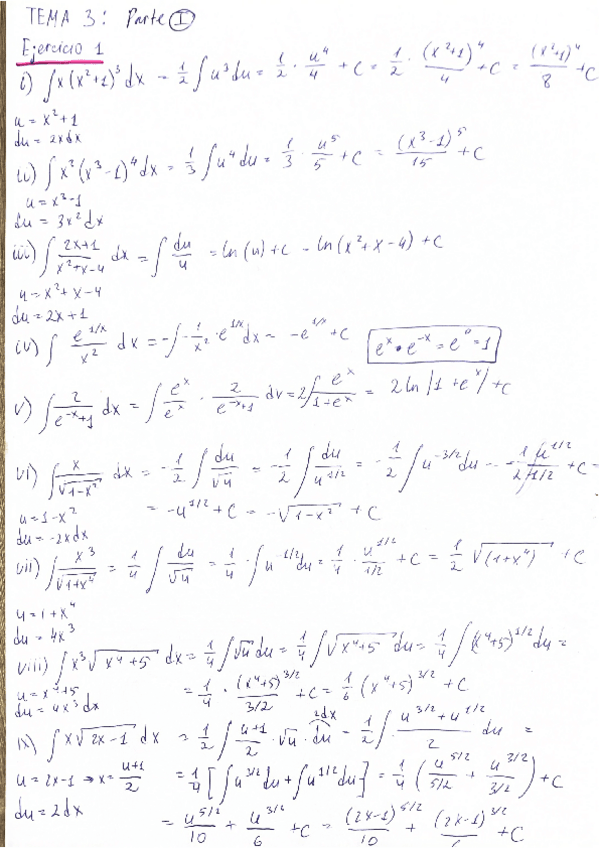 TEMA 3: Parte I
Ejercicio 1
i) ∫x(x²+1)³dx = 1/2 ∫u³du = 1/2 · u⁴/4 + C = 1/2 · (x²+1)⁴/4 + C = (x²+1)⁴/8 + C
u = x²+1
du = 2xdx
ii) ∫x²(x³-1)⁴dx = 1/3 ∫u⁴du = 1/3 · u⁵/5 + C = (x³-1)⁵/15 + C
u = x³-1
du = 3x²dx
iii) ∫ 2x+1/x²+x-4 dx = ∫ du/u = ln(u)+C = ln(x²+x-4) + C
u = x²+x-4
du = 2x+1
iv) ∫ e^(1/x)/x² dx = -∫-1/x² · e^(1/x)dx = -e^(1/x) + C e^x · e^(-x) = e⁰ = 1
v) ∫ 2/(e^(-x)+1) dx = ∫ e^x/e^x · 2/(e^(-x)+1) dx = 2∫ e^x/(1+e^x) = 2ln|1+e^x| + C
vi) ∫ x/√(1-x²) dx = -1/2 ∫ du/√u = -1/2 ∫ du/u^(1/2) = -1/2 ∫u^(-3/2)du = -1/2 u^(1/2)/(1/2) + C =
u = 1-x² = -u^(1/2) + C = -√(1-x²) + C
du = -2xdx
vii) ∫ x³/√(1+x⁴) = 1/4 ∫ du/√u = 1/4 · ∫u^(-1/2)du = 1/4 · u^(1/2)/(1/2) + C = 1/2 √(1+x⁴) + C
u = 1+x⁴
du = 4x³
viii) ∫x³√(x⁴+5) dx = 1/4 ∫√u du = 1/4 ∫√(x⁴+5) du = 1/4 ∫(x⁴+5)^(1/2)du =
u = x⁴+5 = 1/4 · (x⁴+5)^(3/2)/(3/2) + C = 1/6 (x⁴+5)^(3/2) + C
du = 4x³dx
ix) ∫x√(2x-1) dx = 1/2 ∫ (u+1)/2 · √u · du 2dx = 1/2 ∫ (u^(3/2)+u^(1/2))/2 du =
u = 2x-1 → x = (u+1)/2 = 1/4 [∫u^(3/2)du + ∫u^(1/2)du] = 1/4 (u^(5/2)/(5/2) + u^(3/2)/(3/2)) + C
du = 2dx = u^(5/2)/10 + u^(3/2)/6 + C = (2x-1)^(5/2)/10 + (2x-1)^(3/2)/6 + C